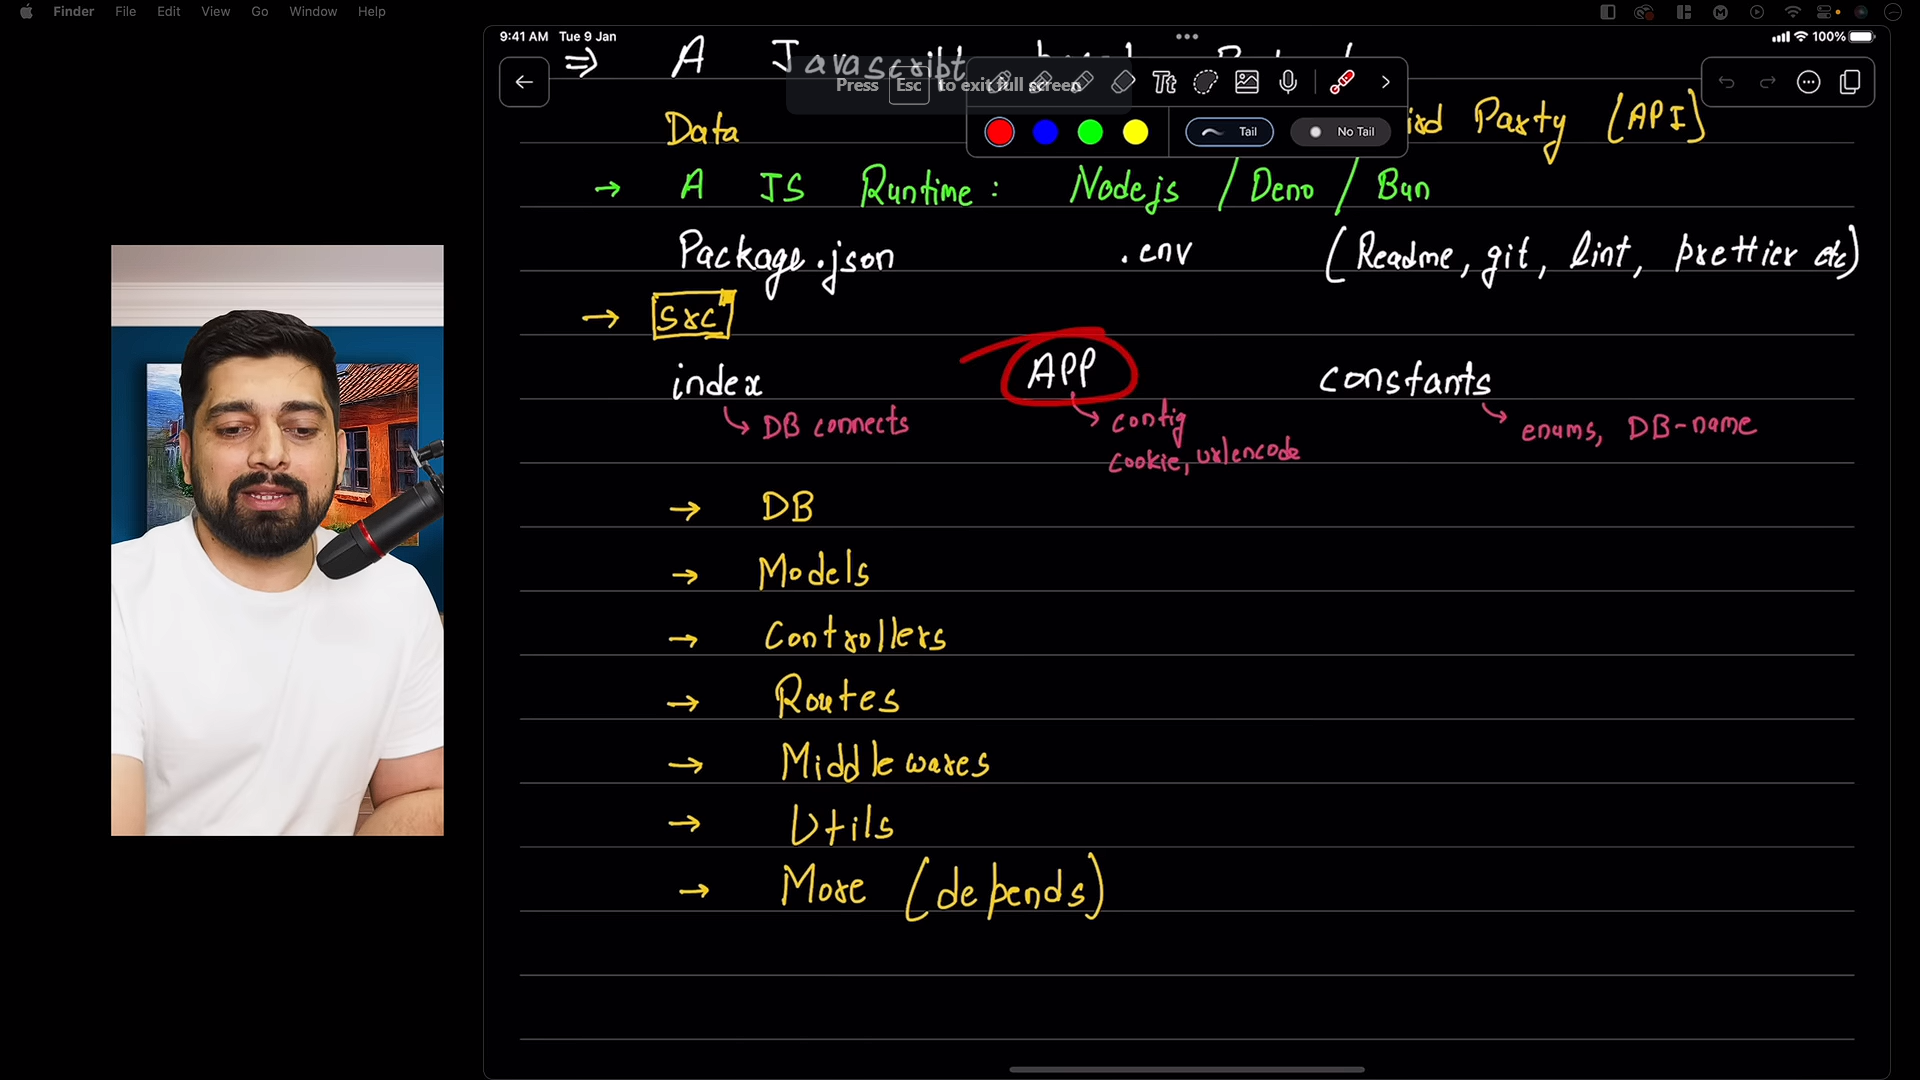 Finder File Edit View Go Window Help
9:41 AM Tue 9 Jan
100%
⇒ A Javascript
Press Esc to exit full screen
Tt
Data
Tail No Tail
Party (API)
→ A JS Runtime: Nodejs / Deno / Bun
Package.json .env (Readme, git, lint, prettier etc)
→ src
index APP constants
DB connects config enums, DB-name
cookie, urlencode
→ DB
→ Models
→ Controllers
→ Routes
→ Middlewares
→ Utils
→ More (depends)